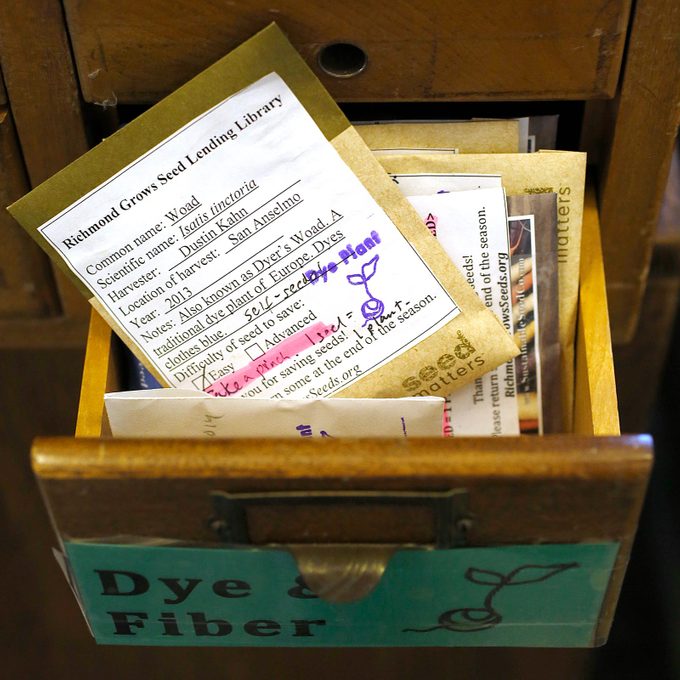 Richmond Grows Seed Lending Library
Common name: Woad
Scientific name: Isatis tinctoria
Harvester: Dustin Kahn
Location of harvest: San Anselmo
Year: 2013
Notes: Also known as Dyer's Woad. A
traditional dye plant of Europe. Dyes
clothes blue. self-seeds
Dye Plant
Difficulty of seed to save:
Easy Advanced
Take a pinch. 1 seed = 1 plant.
you for saving seeds!
rn some at the end of the season.
Seeds.org
seed
matters
matters
Seeds!
end of the season.
Thank
Please return
Richmond
rowsSeeds.org
Dye &
Fiber